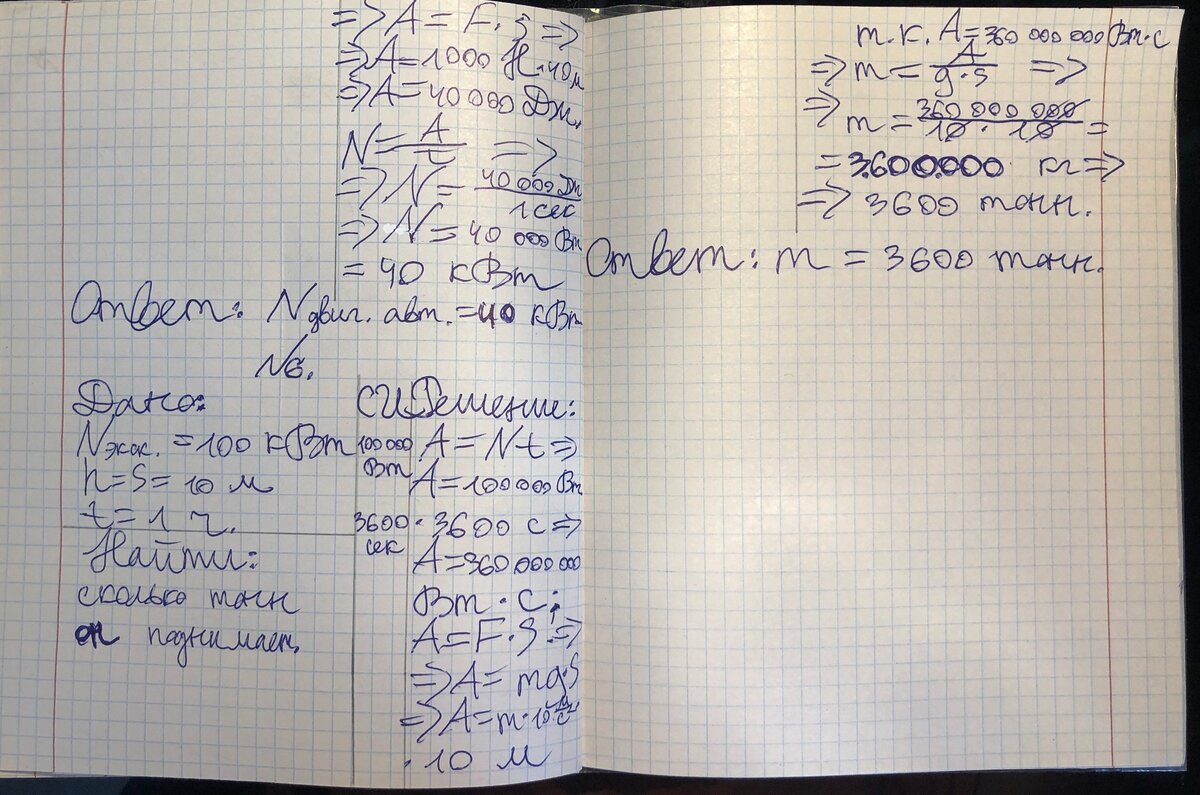 => A = F·S =>
=> A = 1000 Н·40м
=> A = 40 000 Дж.
N = A/t =>
=> N = 40 000 Дж/1 сек
=> N = 40 000 Вт
= 40 кВт
Ответ: N двиг. авт. = 40 кВт
№6.
Дано:
N экск. = 100 кВт
h = S = 10 м
t = 1 ч.
Найти:
сколько тонн
он поднимает.
СИ
100 000
Вт
3600
сек
Решение:
A = Nt =>
A = 100 000 Вт
· 3600 с =>
A = 360 000 000
Вт · с;
A = F·S =>
=> A = mg·S
=> A = m·10 м/с²
· 10 м
т.к. A = 360 000 000 Вт·с
=> m = A/g·s =>
=> m = 360 000 000/10 · 10 =
= 3.600.000 кг =>
=> 3600 тонн.
Ответ: m = 3600 тонн.